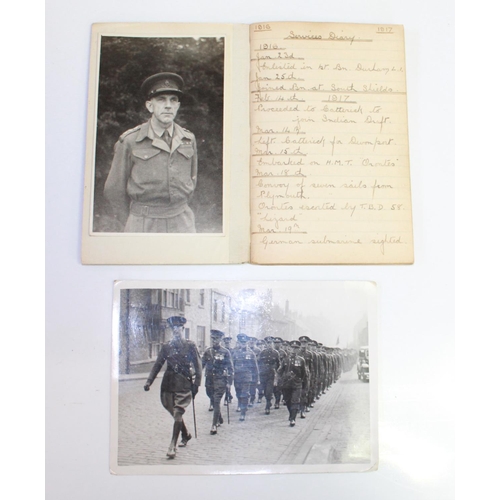 1916 1917
Services Diary
1916
Jan 23d
Enlisted in 1st Bn. Durham L.I.
Jan 25th
Joined Bn. at South Shields
Feb 4th 1917
Proceeded to Catterick to
join Indian Draft.
Mar 14th
Left Catterick for Devonport.
Mar 15th
Embarked on H.M.T. "Orontes"
Mar 18th
Convoy of seven sails from
Plymouth.
Orontes escorted by T.B.D. 55.
"Lizard"
Mar 19th
German submarine sighted